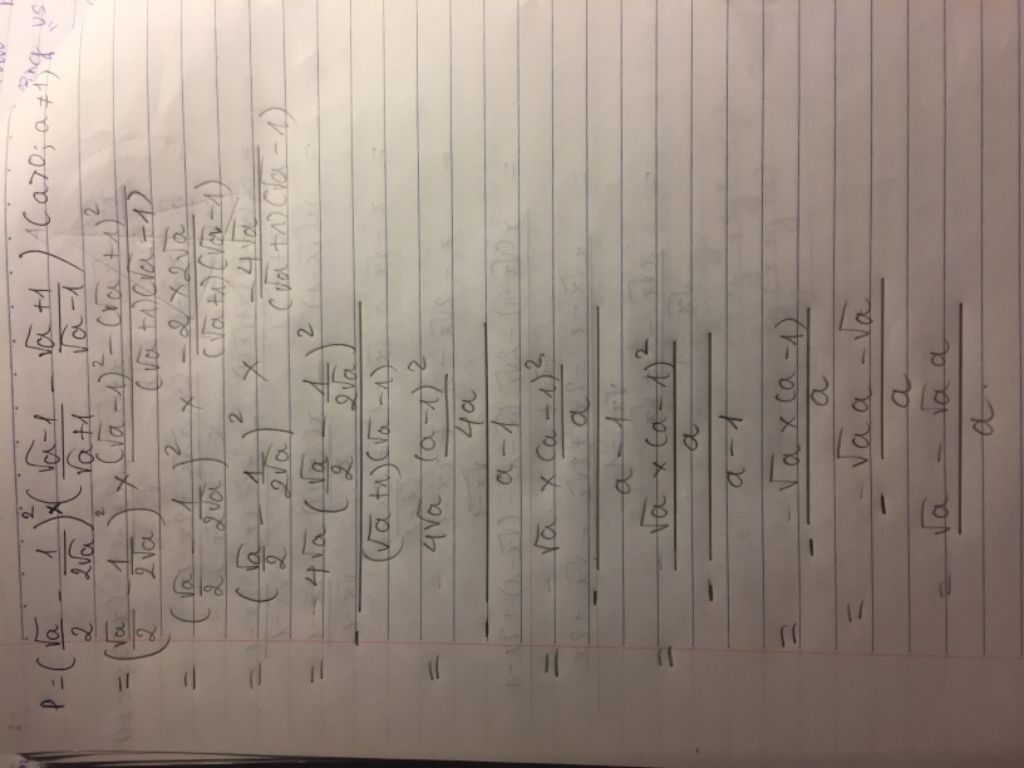 P = (√a/2 - 1/2√a)² × (√a-1/√a+1 - √a+1/√a-1) (a>0; a≠1)
= (√a/2 - 1/2√a)² × (√a-1)² - (√a+1)²/(√a+1)(√a-1)
= (√a/2 - 1/2√a)² × -2×2√a/(√a+1)(√a-1)
= (√a/2 - 1/2√a)² × -4√a/(√a+1)(√a-1)
= -4√a(√a/2 - 1/2√a)²/(√a+1)(√a-1)
= -4√a (a-1)²/4a/a-1
= -√a × (a-1)²/a/a-1
= -√a × (a-1)²/a/a-1
= -√a × (a-1)/a
= -√a a - √a/a
= √a - √a a/a